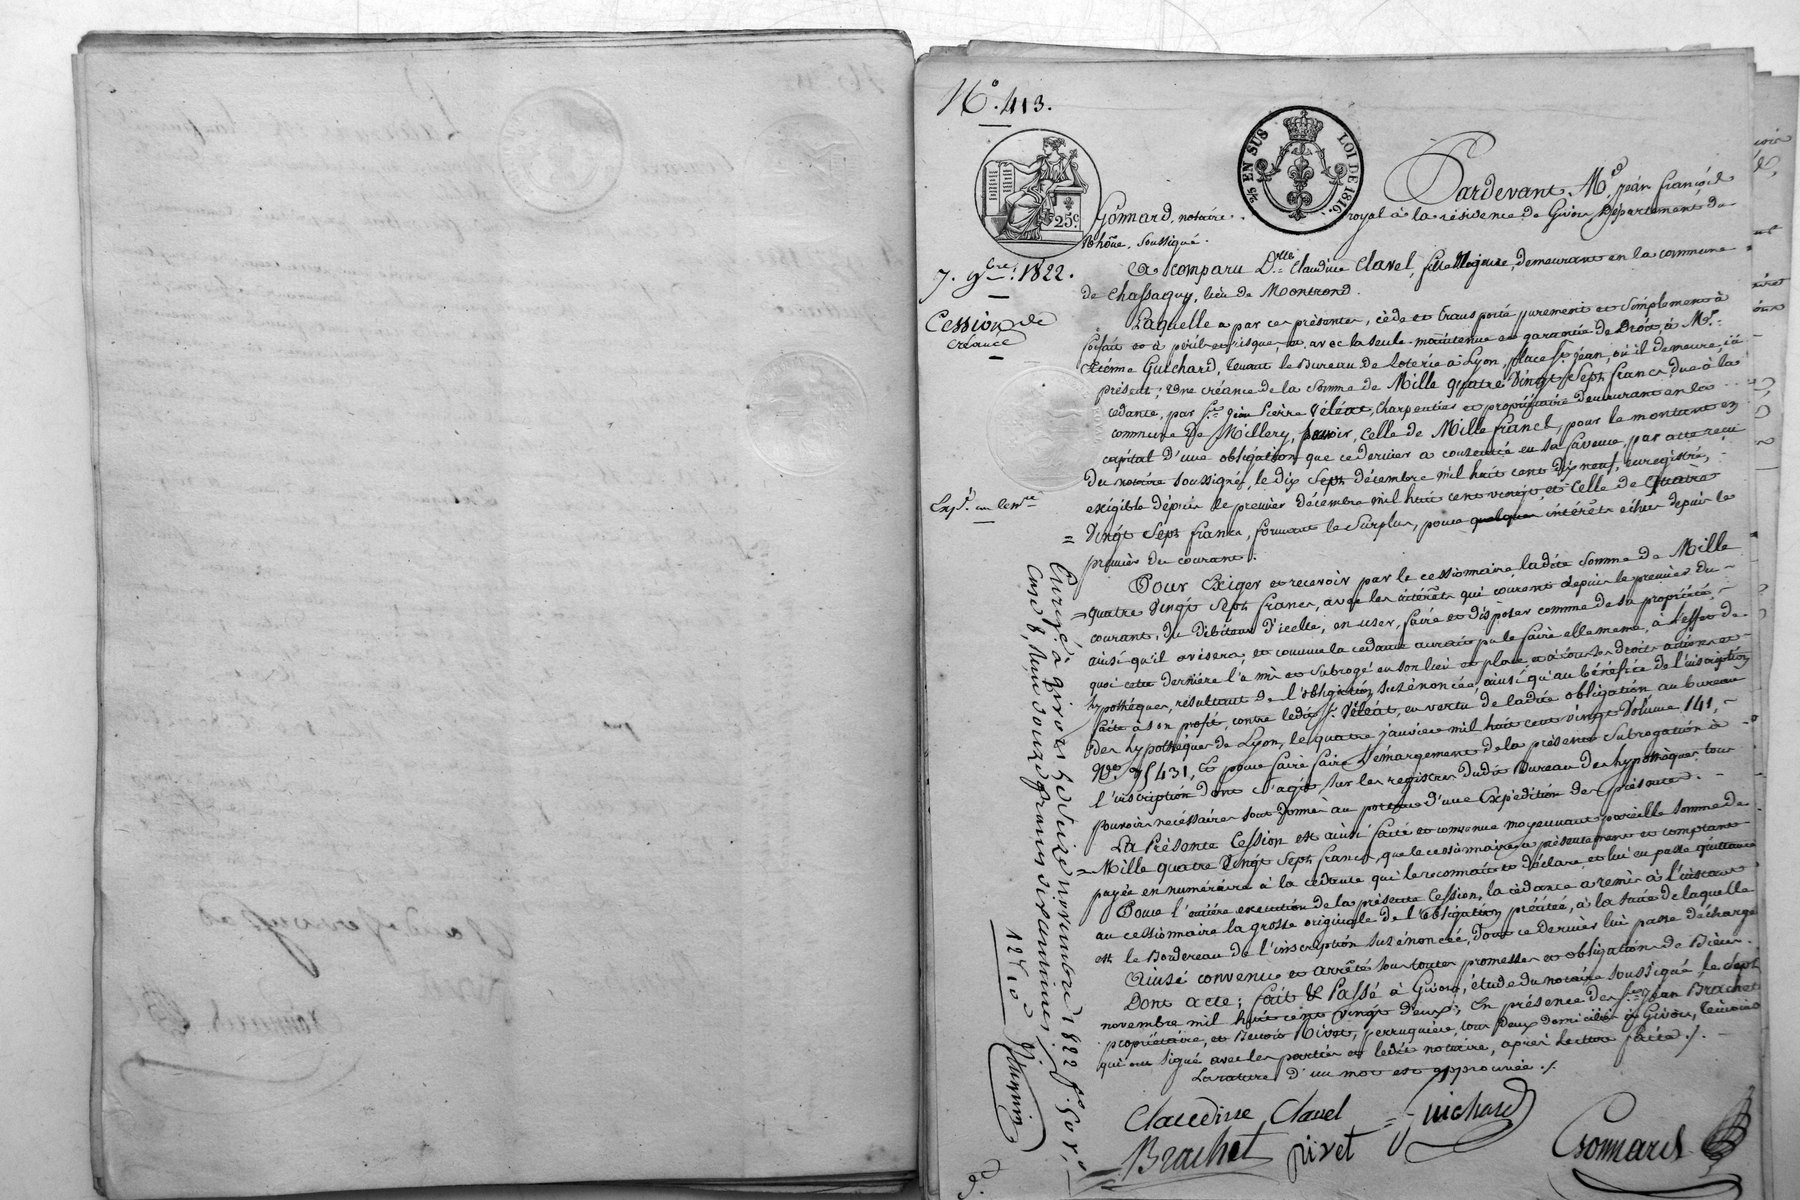 N.° 413.
2/5 EN SUS LOI DE 1816.
25c.
Pardevant M.e Jean François
Gonnard, notaire royal à la résidence de Givors, Département du
Rhône, soussigné.
7. 9bre 1822.
A comparu D.lle Claudine Clavel, fille Majeure, demeurant en la commune
de Chassagny, lieu de Montrond.
Cession de
créance
Laquelle a par ces présentes, cède et transporté purement et simplement à
forfait et à péril et risque, et avec la seule maintenue et garantie de Droit, à M.r
Guichard, tenant le Bureau de loterie à Lyon, place St. Jean, où il demeure, ici
présent; Une créance de la somme de Mille quatre Vingt Sept francs, due à la
cédante, par S.r Jean Pierre Véléat, charpentier et propriétaire demeurant en la
commune de Millery, savoir, celle de Mille francs, pour le montant en
capital d'une obligation que ce dernier a consentie en sa faveur, par acte reçu
du notaire soussigné, le dix Sept décembre mil huit cent dix neuf, enregistré,
exigible depuis le premier décembre mil huit cent vingt, et celle de quatre
Exp.é au
= Vingt Sept francs, formant le surplus, pour quelques intérêts échus depuis le
premier du courant.
Pour Exiger et recevoir par le cessionnaire ladite Somme de Mille
= quatre Vingt Sept francs, avec les intérêts qui courent depuis le premier du
courant, du débiteur d'icelle, en user, faire et disposer comme de sa propriété,
ainsi qu'il avisera, et comme la cédante aurait pu le faire elle même, à l'effet de
quoi cette dernière l'a mis et subrogé en son lieu et place, et à tous ses droits actions et
hypothèques, résultant de l'obligation susénoncée, ainsi qu'au bénéfice de l'inscription
faite à son profit, contre ledit S.r Véléat, en vertu de ladite obligation au bureau
des hypothèques de Lyon, le quatre janvier mil huit cent vingt Volume 141,
N.o 431, Et pour faire faire l'émargement de la présente subrogation à
l'inscription dont s'agit, sur les registres dudit Bureau des hypothèques, tous
pouvoirs nécessaires sont donnés au porteur d'une Expédition des présentes.
La Présente Cession est ainsi faite et convenue moyennant pareille somme de
= Mille quatre Vingt Sept francs, que le cessionnaire a présentement et comptant
payée en numéraire à la cédante qui le reconnait et déclare et lui en passe quittance
Pour l'entière exécution de la présente Cession, la cédante a remis à l'instant
au cessionnaire la grosse originale de l'obligation précitée, à la suite de laquelle
est le Bordereau de l'inscription susénoncée, dont ce dernier lui passe décharge
Ainsi convenu et arrêté sous toutes promesses et obligations de Biens.
Dont acte; fait & Passé à Givors, étude du notaire soussigné le sept
novembre mil huit cent vingt deux; En présence des S.rs Jean Brachet
propriétaire, et Benoit Pivot, perruquier, tous deux domiciliés à Givors, témoins
qui ont signé avec les parties et ledit notaire, après lecture faite ./.
La rature d'un mot est approuvée ./.
Claudine Clavel = Guichard
Brachet pivot Gonnard
Enreg.é à givors le seize novembre 1822 f.o 50 v.o
case 8, reçu douze francs dix centimes
12f 10